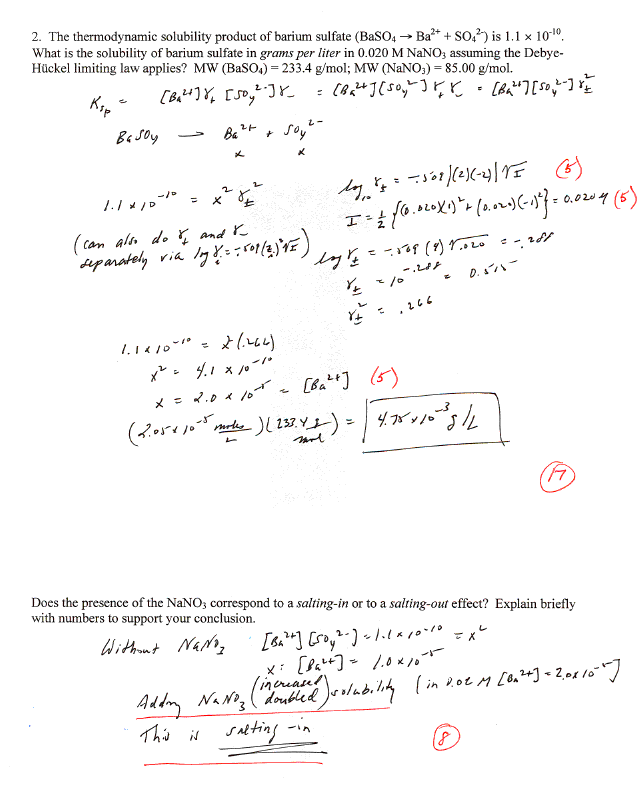 2. The thermodynamic solubility product of barium sulfate (BaSO₄ → Ba²⁺ + SO₄²⁻) is 1.1 × 10⁻¹⁰.
What is the solubility of barium sulfate in grams per liter in 0.020 M NaNO₃ assuming the Debye-
Hückel limiting law applies? MW (BaSO₄) = 233.4 g/mol; MW (NaNO₃) = 85.00 g/mol.
Ksp = [Ba²⁺]γ₊ [SO₄²⁻]γ₋ = [Ba²⁺][SO₄²⁻]γ₊γ₋ = [Ba²⁺][SO₄²⁻]γ±²
BaSO₄ → Ba²⁺ + SO₄²⁻
x x
1.1 x 10⁻¹⁰ = x² γ±²
(can also do γ₊ and γ₋
separately via log γᵢ = -.509(zᵢ)²√I)
log₁₀ γ± = -.509 |(2)(-2)| √I (5)
I = ½ {(0.020)(1)² + (0.020)(-1)²} = 0.020 M (5)
log γ± = -.509 (4) √.020 = -.288
γ± = 10^-.288 = 0.515
γ±² = .266
1.1 x 10⁻¹⁰ = x² (.266)
x² = 4.1 x 10⁻¹⁰
x = 2.0 x 10⁻⁵ = [Ba²⁺] (5)
(2.05 x 10⁻⁵ moles/L)(233.4 g/mol) = 4.75 x 10⁻³ g/L
17
Does the presence of the NaNO₃ correspond to a salting-in or to a salting-out effect? Explain briefly
with numbers to support your conclusion.
Without NaNO₃ [Ba²⁺][SO₄²⁻] = 1.1 x 10⁻¹⁰ = x²
x = [Ba²⁺] = 1.0 x 10⁻⁵
Adding NaNO₃ (increased doubled) solubility (in 0.02 M [Ba²⁺] = 2.0 x 10⁻⁵)
This is salting-in
8